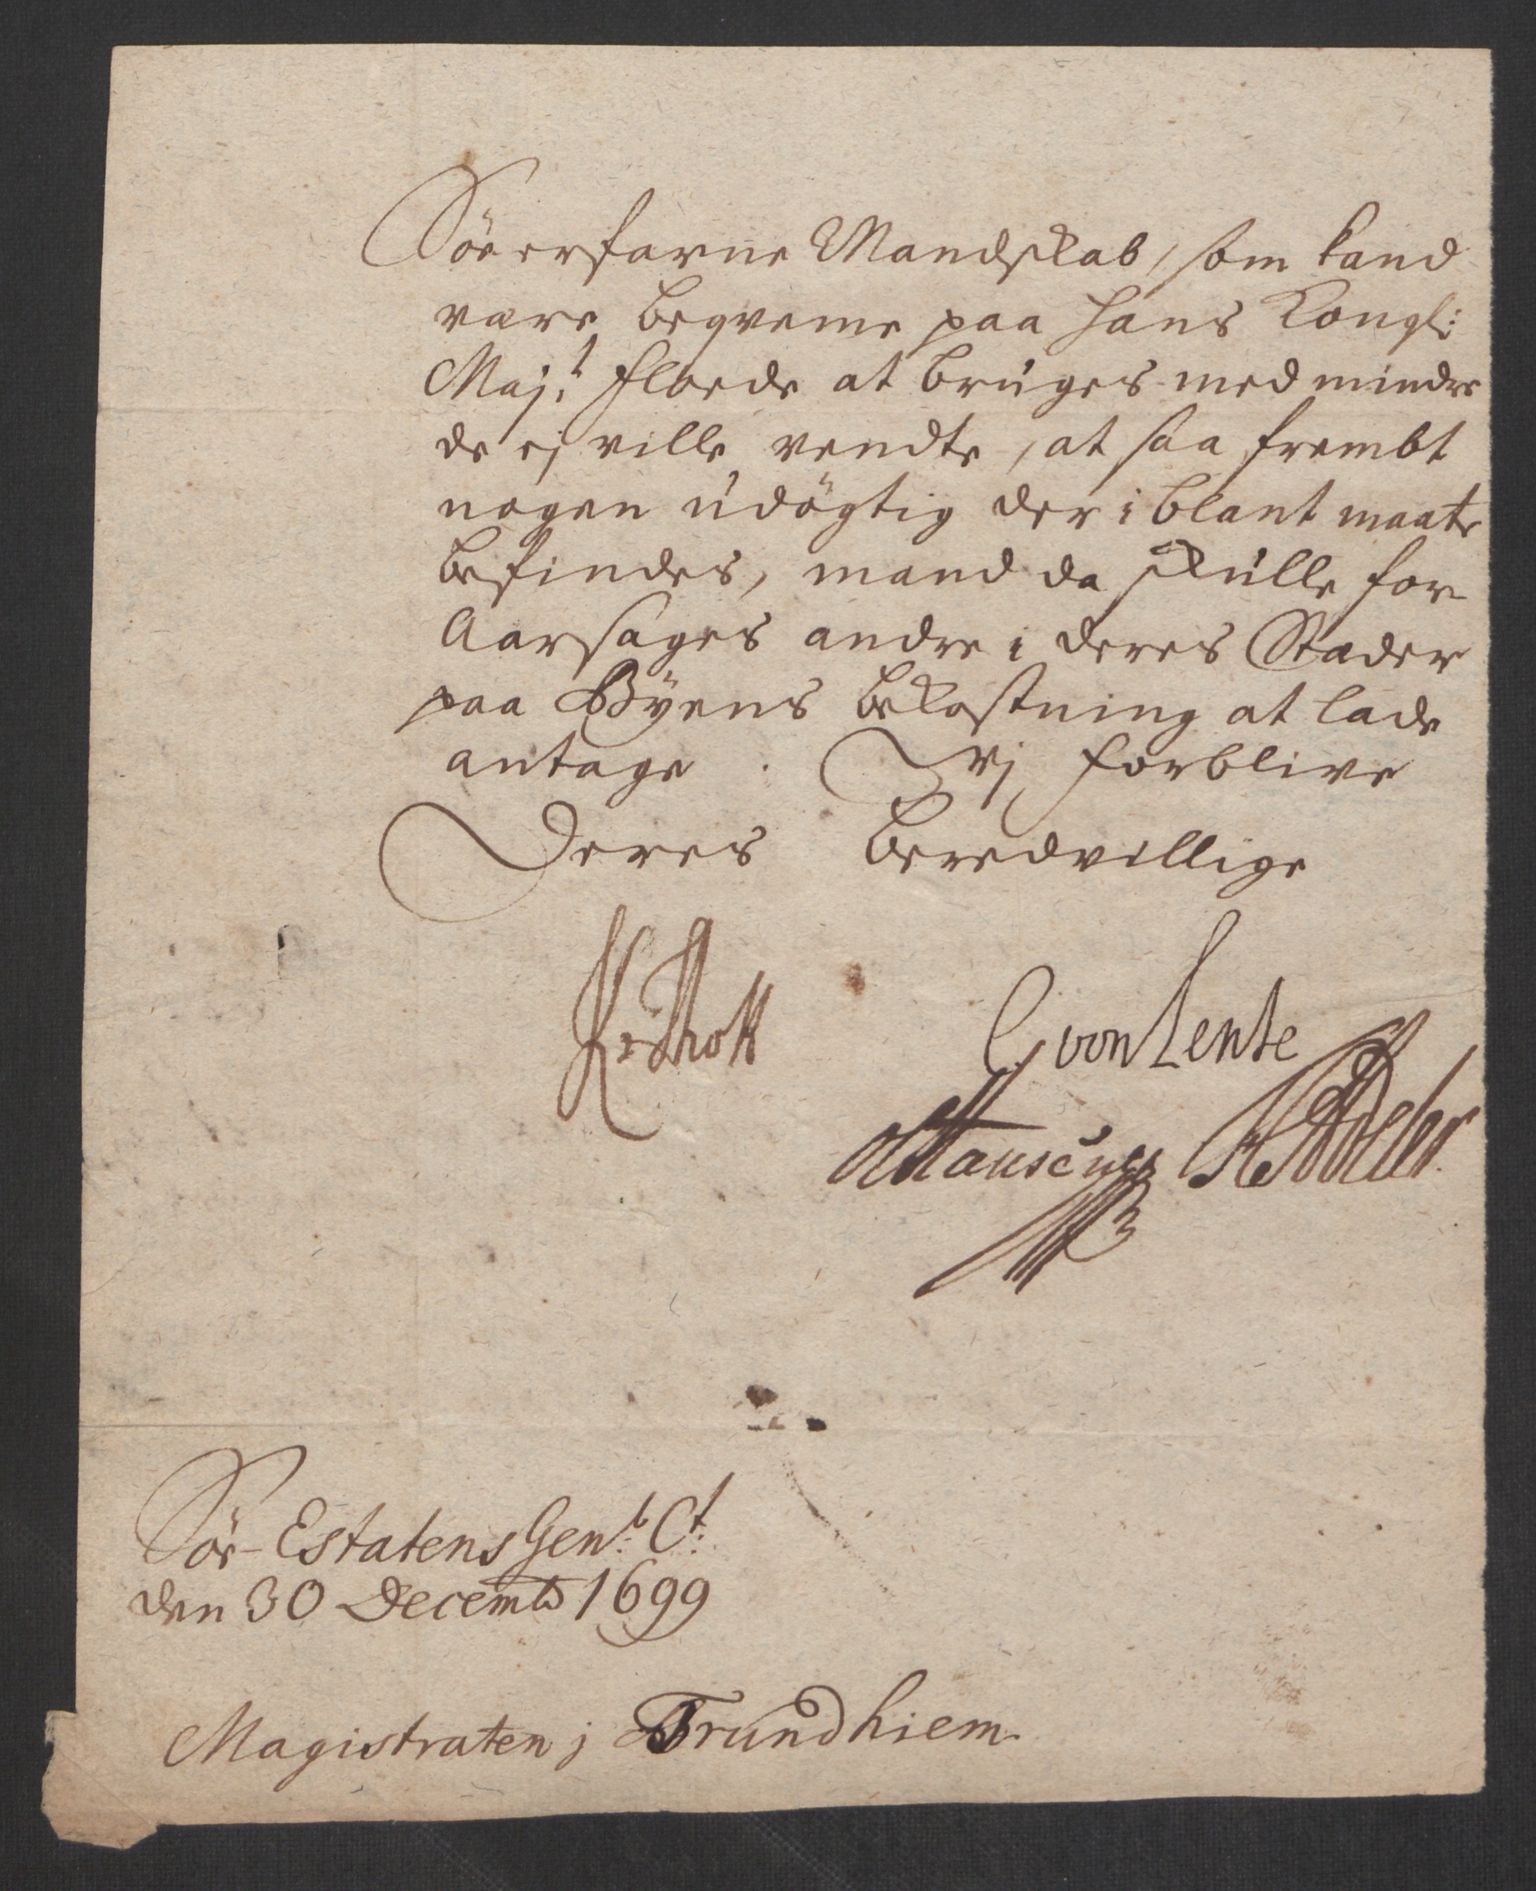 Söeerfarne Mandskab, som kand
være begveme paa Hans Kongl:
Maj:t Floede at brúges med mindre
de ej ville vendte, at saa frembt
nogen údögtig der i blant maatte
befindes, mand da skúlle for-
Aarsages andre i deres Stæder
paa Býens bekostning at lade
antage. Vj forblive
Deres beredvillige
KrThott
C von Lente
OHansen HAdeler
Söe-Estatens Gen:l C:t
den 30 Decemb 1699
Magistraten j Trundhiem